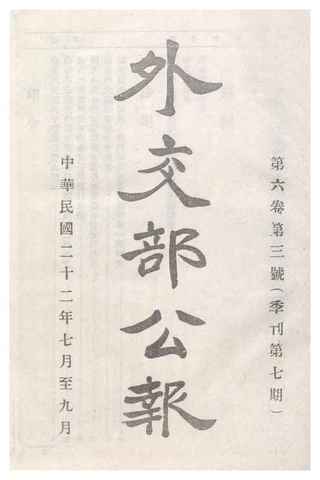 第六卷第三號(季刊第七期)
外交部公報
中華民國二十二年七月至九月